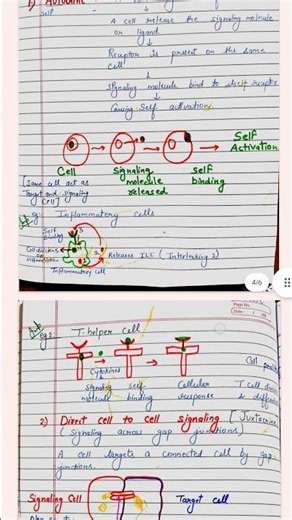 1) Autocrine
self
A cell release the signaling molecule
or ligand
Receptor is present on the same
cell
signaling molecule bind to itself
Causing self activation
Self
Activation
Cell
Signaling
molecule
released
Self
binding
[Same cell act as
Target and signaling
cell]
eg: Inflammatory cells
Self
Binding
Releases IL2 (Interleukin 2)
Inflammatory cell
4/6
Page No.
Date
eg: T-helper cell
Cytokines
signaling
molecule
self
binding
Cellular
response
T cell
&
2) Direct cell to cell signaling
(signaling across gap junctions)
A cell targets a connected cell by gap
junctions.
Signaling Cell
Target cell